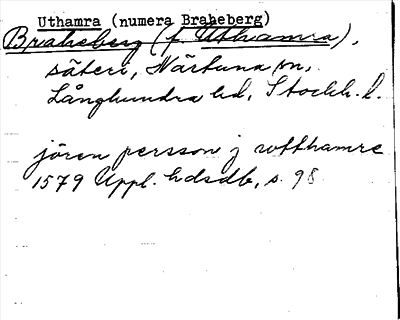 Uthamra (numera Braheberg)
Braheberg (f. Uthamra),
säteri, Närtuna sn,
Långhundra hd, Stockh. l.
jören persson j wtthamre
1579 Uppl. hdsdb, s. 98